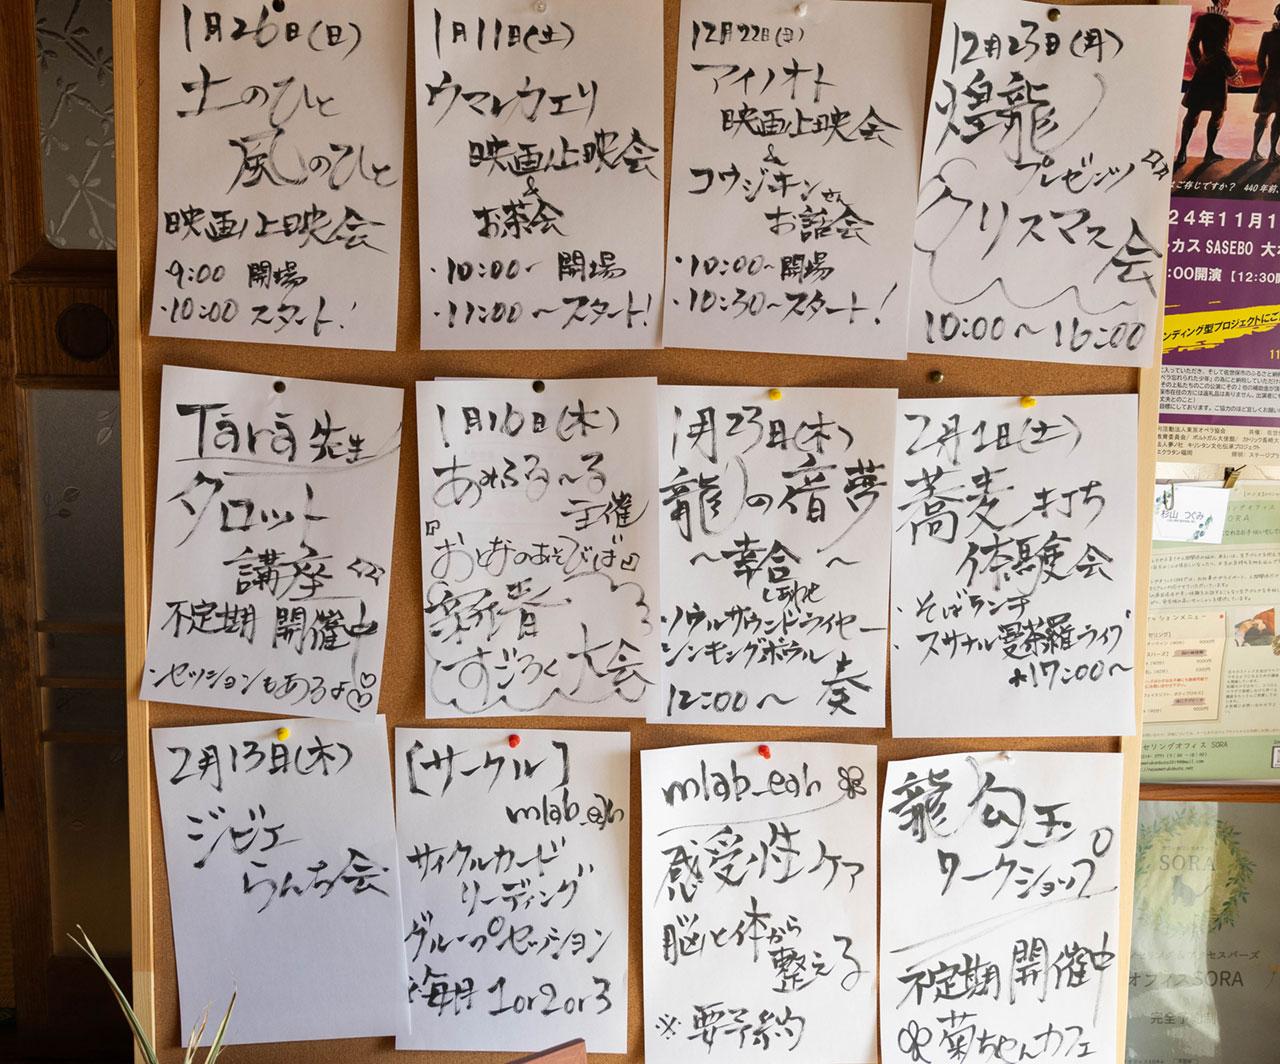 1月26日(日)
土のひと
風のひと
映画上映会
・9:00 開場
・10:00 スタート!
1月11日(土)
ウマレカエリ
映画上映会
&
お茶会
・10:00~ 開場
・11:00~スタート!
12月22日(日)
アイノオト
映画上映会
&
コウジキンさん
お話会
・10:00~開場
・10:30~スタート!
12月23日(月)
煌龍
プレゼンツ
クリスマス
会
10:00~16:00
Tara先生
タロット
講座
不定期 開催中
・セッションもあるよ
1月16日(木)
あめふる~る
主催
『おとなのあそびば』
新春
すごろく大会
1月23日(木)
龍の音夢
~幸合~
しあわせ
ソウルサウンドライヤー
シンキングボウル
12:00~ 奏
2月1日(土)
蕎麦打ち
体験会
・そばランチ
・スサナル曼荼羅ライブ
17:00~
2月13日(木)
ジビエ
らんち会
[サークル]
mlab_eah
サイクルカード
リーディング
グループセッション
毎月 1or2or3
mlab_eah
感受性ケア
脳と体から
整える
※要予約
龍勾玉
ワークショップ
不定期 開催中
菊ちゃんカフェ
はご存じですか? 440年前、
24年11月1
カス SASEBO 大
:00開演 【12:30開
ンディング型プロジェクトにご
杉山 つぐみ
セリングオフィス SORA
SORA
オフィスSORA